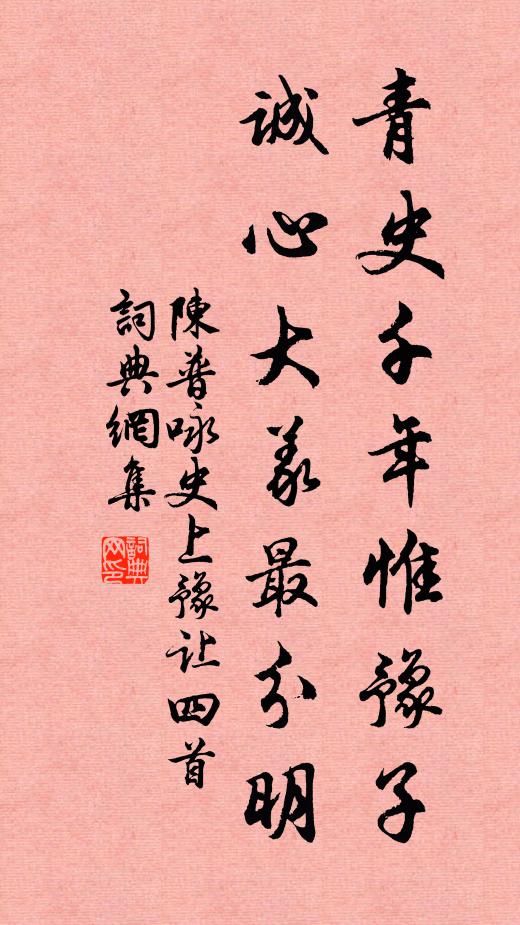 青史千年惟豫子
誠心大義最分明
陳普咏史上豫让四首
詞典網集
詞典网印